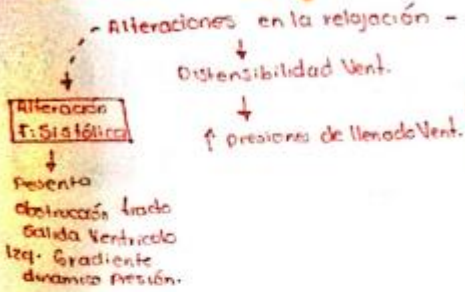 - Alteraciones en la relajación -
Distensibilidad Vent.
↑ presiones de llenado Vent.
Alteración
f: Sistólica
Pesenta
obstrucción tracto
Salida Ventriculo
Izq. Gradiente
dinamico Presión.